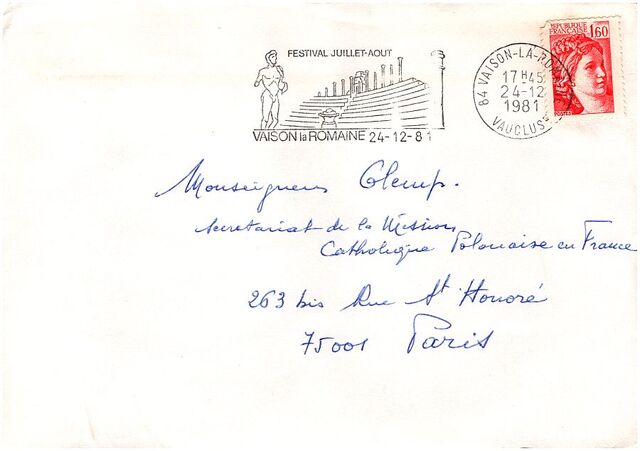 FESTIVAL JUILLET-AOUT
VAISON la ROMAINE 24-12-81
84 VAISON-LA-RO
17 H 45
24-12
1981
VAUCLUSE
REPUBLIQUE
FRANÇAISE
1,60
POSTES
Monseigneur Glemp.
Secretariat de la Mission
Catholique Polonaise en France
263 bis Rue St Honoré
75001 Paris